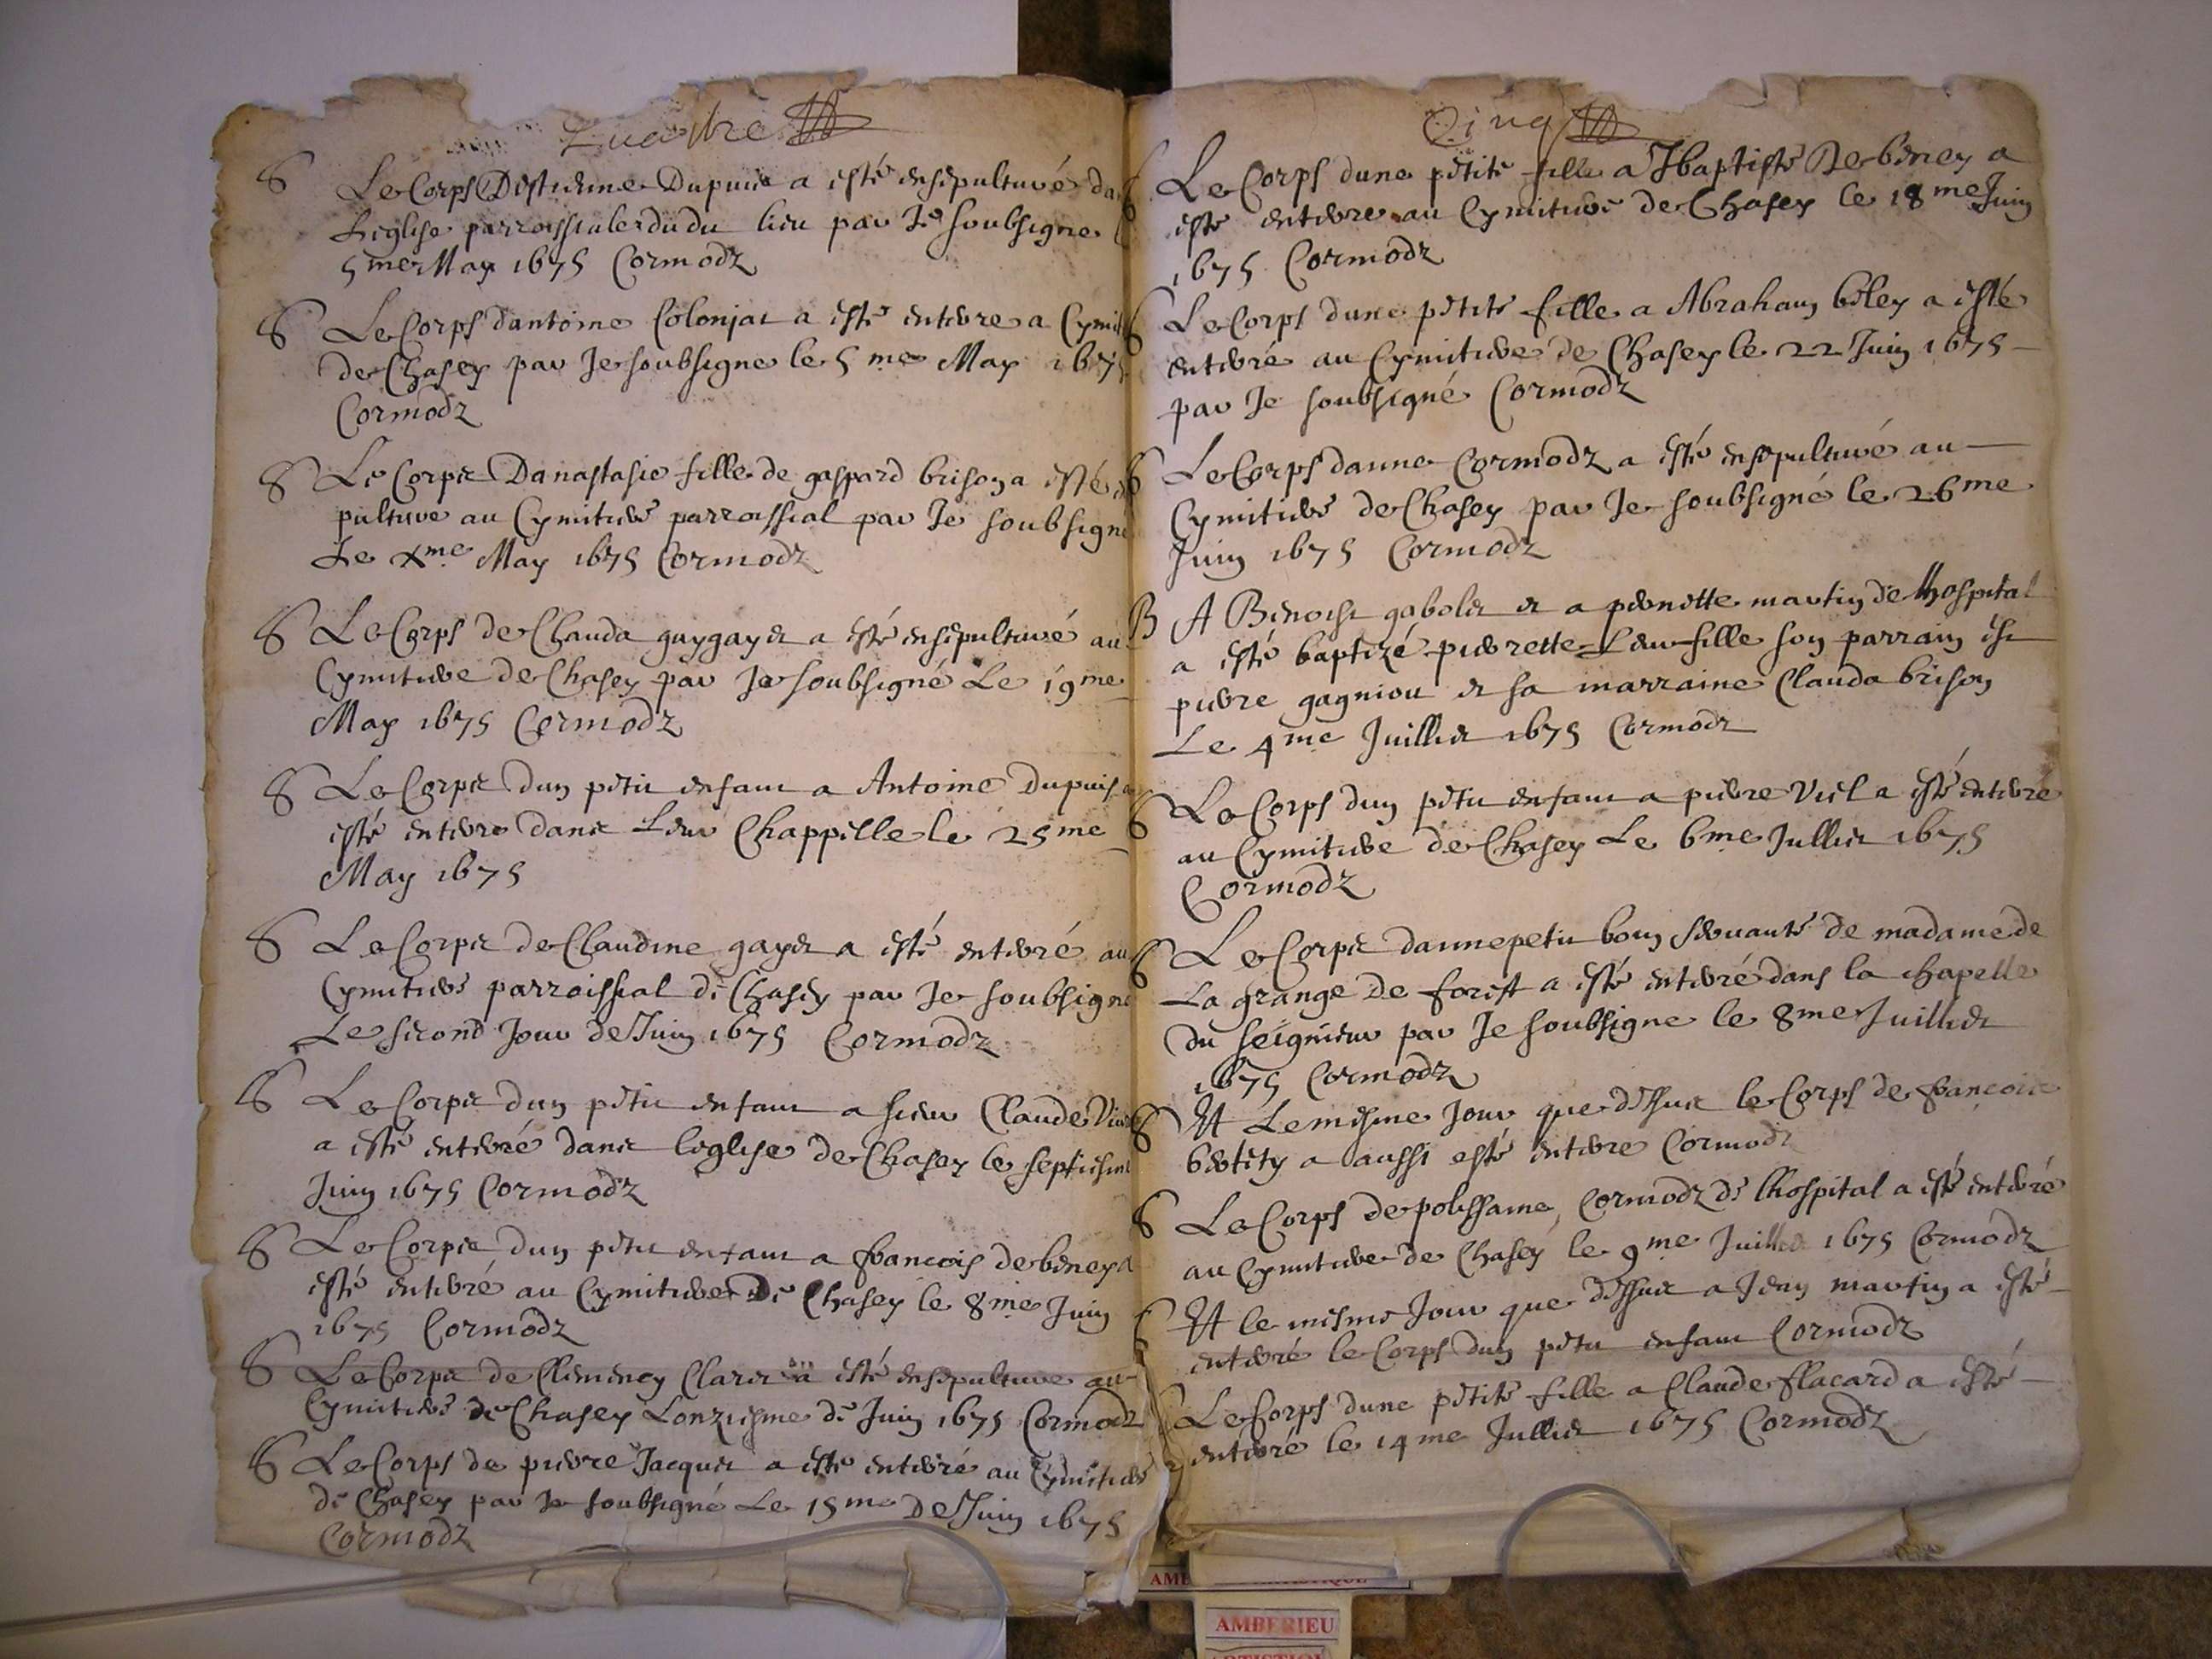 Quatre
S Le Corps Destienne Dupuis a esté ensepulturé da
Leglise parroissiale dudu lieu par Je soubsigne l
5me May 1675 Cormodz
S Le Corps dantoine Colonjat a esté enterre a Cymit
de Chasey par Je soubsigne le 5me May 1675
Cormodz
S Le Corps Danastasie fille de gaspard brison a esté
pulture au Cymitiere parroissial par Je soubsigne
Le Xme May 1675 Cormodz
S Le Corps de Clauda guygayet a esté ensepulturé au
Cymitiere de Chasey par Je soubsigné Le 19me
May 1675 Cormodz
S Le Corps dun petit enfant a Antoine Dupuis a
esté enterre dans Leur Chappelle le 25me
May 1675
S Le Corps de Claudine gayet a esté enterré au
Cymitiere parroissial de Chasey par Je soubsigne
Le second Jour de Juin 1675 Cormodz
S Le Corps dun petit enfant a sieur Claude
a esté enterré dans leglise de Chasey le septiesme
Juin 1675 Cormodz
S Le Corps dun petit enfant a francois debeney a
esté enterré au Cymitiere De Chasey le 8me Juin
1675 Cormodz
S Le Corps de Clemency Claret a esté ensepulture au
Cymitiere de Chasey Lonziesme de Juin 1675 Cormodz
S Le Corps de pierre Jacquet a esté enterré au Cymitiere
de Chasey par Je soubsigné Le 15me De Juin 1675
Cormodz
Cinq
S Le Corps dune petite fille a Jbaptiste Debeney a
esté enterre au Cymitiere de Chasey le 18me Juin
1675 Cormodz
S Le Corps dune petite fille a Abraham beley a esté
enterré au Cymitiere de Chasey le 22 Juin 1675
par Je soubsigné Cormodz
S Le Corps danne Cormodz a esté ensepulturé au
Cymitiere de Chasey par Je soubsigné le 26me
Juin 1675 Cormodz
B A Benoist gabolet et a pernette martin de lhospital
a esté baptizé pierrette Leur fille son parrain est
pierre gagniou et sa marraine Clauda brison
Le 4me Juillet 1675 Cormodz
S Le Corps dun petit enfant a pierre Viel a esté enterré
au Cymitiere de Chasey Le 6me Jullier 1675
Cormodz
S Le Corps danne petit bon servante de madame de
La grange de forest a esté enterré dans la chapelle
du seignieur par Je soubsigne le 8me Juillet
1675 Cormodz
S Et Le mesme Jour que dessus le Corps de francoise
bertety a aussi esté enterre Cormodz
S Le Corps de polissaine Cormodz de lhospital a esté enterré
au Cymitiere de Chasey le 9me Juillet 1675 Cormodz
S Et le mesme Jour que dessus a Jean martin a esté
enterré le Corps dun petit enfant Cormodz
S Le Corps dune petite fille a Claude flacard a esté
enterré le 14me Jullier 1675 Cormodz
AMBERIEU